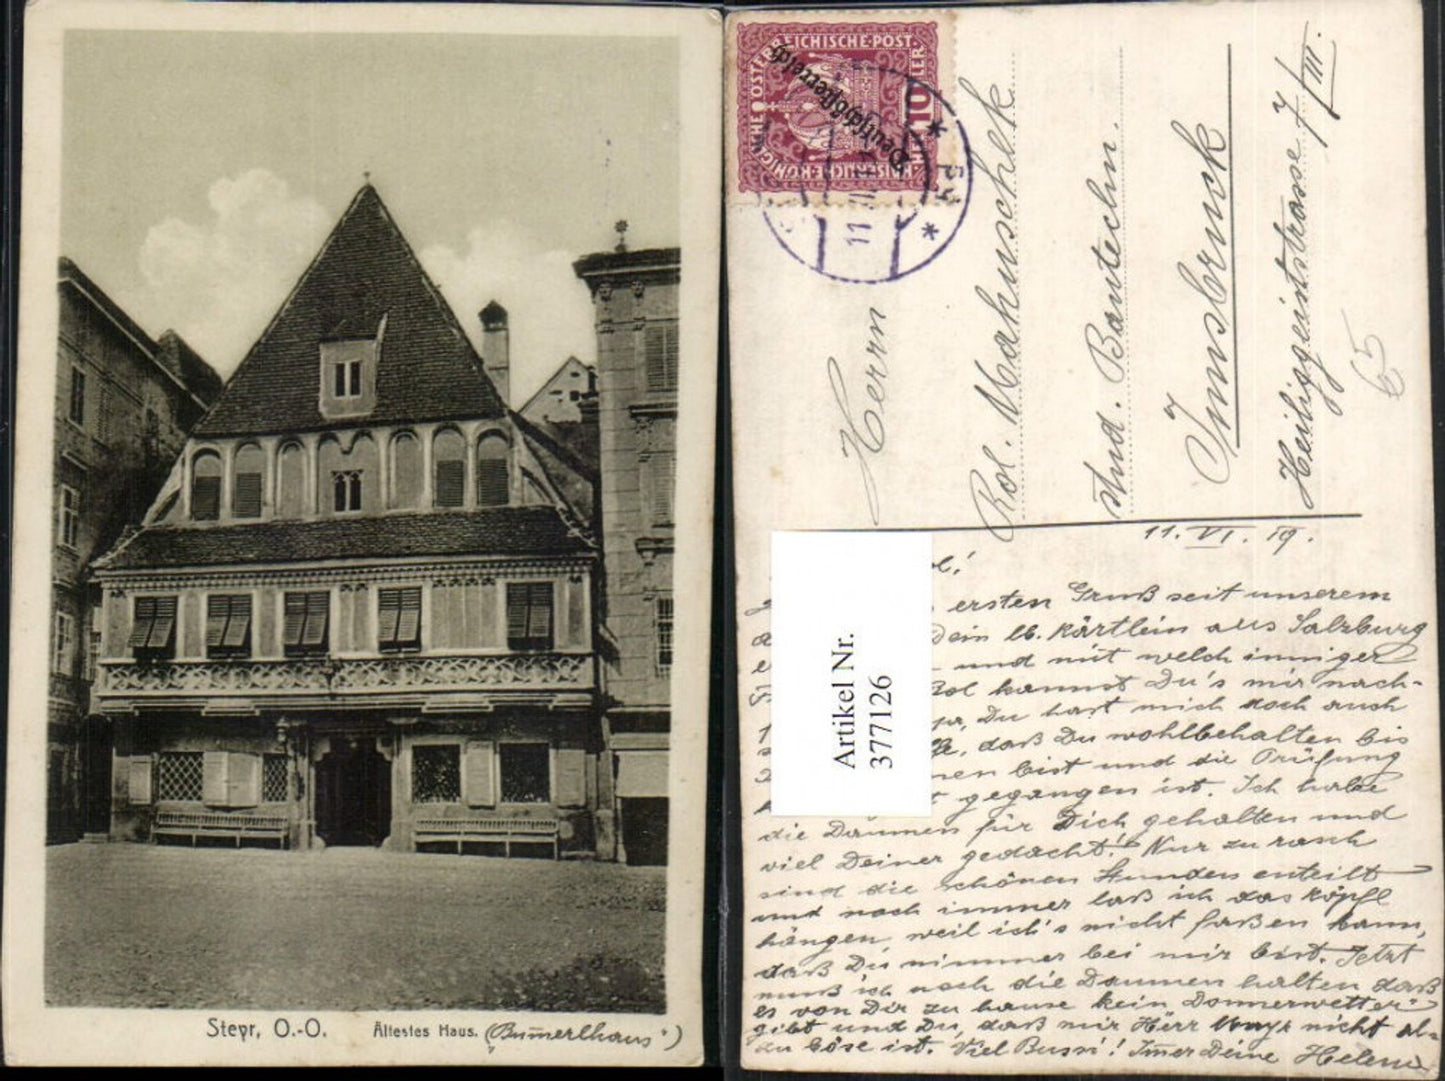 Steyr, O.-O. Ältestes Haus. (Bum̅merlhaus)
ÖSTERREICHISCHE·POST·
KAISERLICHE·KÖNIGLICHE
10 HELLER
Deutschösterreich
11
Herrn
Rol. Mahunschek
stud. Bautechn.
Innsbruck
Heiliggeiststrasse 7/III.
65
Artikel Nr.
377126
11. VI. 19.
ersten Gruß seit unserem
Dein lb. Kärtlein aus Salzburg
und mit welch inniger
kannst Du's mir nach-
Du hast mich doch auch
daß Du wohlbehalten bis
bist und die Prüfung
gegangen ist. Ich habe
die Daumen für Dich gehalten und
viel Deiner gedacht! Nur zu rasch
sind die schönen Stunden enteilt
und noch immer laß ich das Köpfl
hängen, weil ich's nicht faßen kann,
daß Du nimmer bei mir bist. Jetzt
muß ich noch die Daumen halten daß
es von Dir zu hause kein Donnerwetter
gibt und Du, daß mir Herr nicht all-
zu böse ist. Viel Bussi! Im̅mer Deine Helene